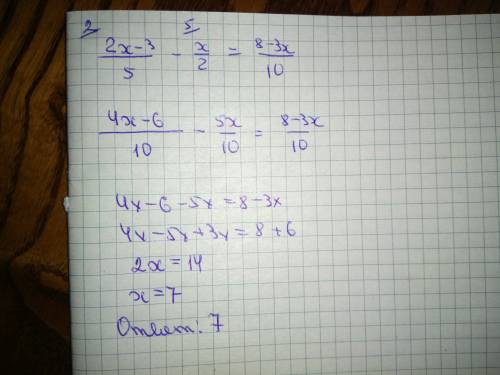 2 5
(2x-3)/5 - x/2 = (8-3x)/10
(4x-6)/10 - 5x/10 = (8-3x)/10
4x-6-5x=8-3x
4x-5x+3x=8+6
2x=14
x=7
Ответ: 7